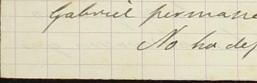 Gabriel permane
No ha dej